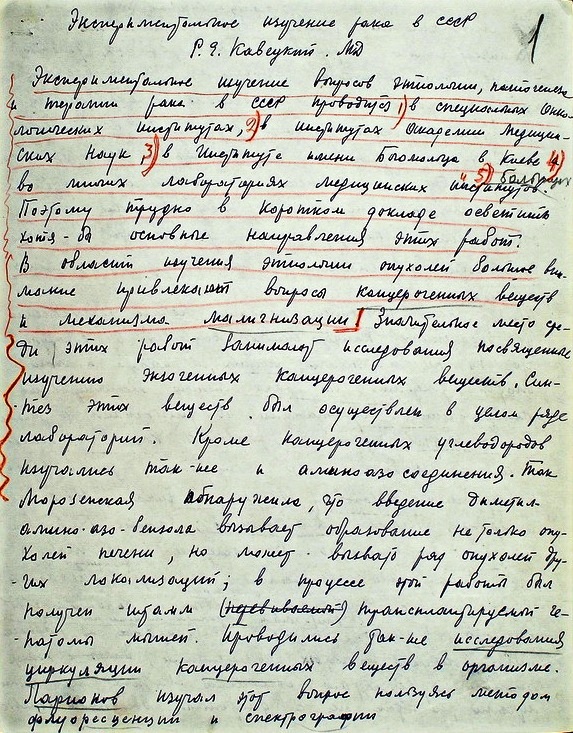 Экспериментальное изучение рака в СССР
Р. Я. Кавецкий. МД
1
Экспериментальное изучение вопросов этиологии, патогенеза
и терапии рака в СССР проводится 1) в специальных онко-
логических институтах, 2) в институтах Академии Медицин-
ских Наук, 3) в Институте имени Богомольца в Киеве и 4)
во многих лабораториях медицинских институтов. 5)
Поэтому трудно в коротком докладе осветить
хотя-бы основные направления этих работ.
В области изучения этиологии опухолей большое вни-
мание привлекают вопросы канцерогенных веществ
и механизма малигнизации. Значительное место сре-
ди этих работ занимают исследования посвященные
изучению экзогенных канцерогенных веществ. Син-
тез этих веществ был осуществлен в целом ряде
лабораторий. Кроме канцерогенных углеводородов
изучались так-же и аминоазосоединения. Так
Морозенская обнаружила, что введение диметил-
амино-азо-бензола вызывает образование не только опу-
холей печени, но может вызвать ряд опухолей дру-
гих локализаций; в процессе этой работы был
получен штамм (перевиваемой) трансплантируемой ге-
патомы мышей. Проводились так-же исследования
циркуляции канцерогенных веществ в организме.
Ларионов изучал этот вопрос пользуясь методом
флуоресценции и спектрографии